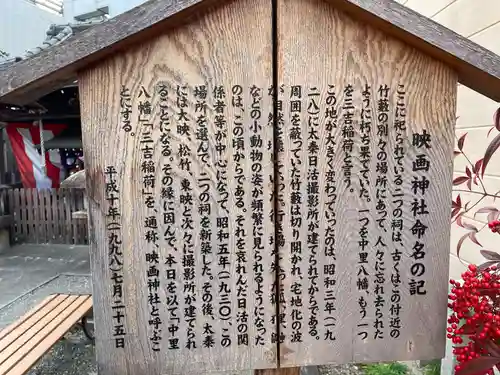 映画神社命名の記
ここに祀られている二つの祠は、古くはこの付近の
竹藪の別々の場所にあって、人々に忘れ去られた
ように朽ち果てていた。一つを中里八幡、もう一つ
を三吉稲荷と言う。
この地が大きく変わっていったのは、昭和三年(一九
二八)に太秦日活撮影所が建てられてからである。
周囲を蔽っていた竹藪は切り開かれ、宅地化の波
が自然 いった。行 場 った狐、狸
などの小動物の姿が頻繁に見られるようになった
のは、この頃からである。それを哀れんだ日活の関
係者等が中心になって、昭和五年(一九三〇)、この
場所を選んで、二つの祠を新築した。その後、太秦
には大映、松竹、東映と次々に撮影所が建てられ
ることになる。その縁に因んで、本日を以て「中里
八幡」「三吉稲荷」を通称、映画神社と呼ぶこ
とにする。
平成十年(一九九八)七月二十五日